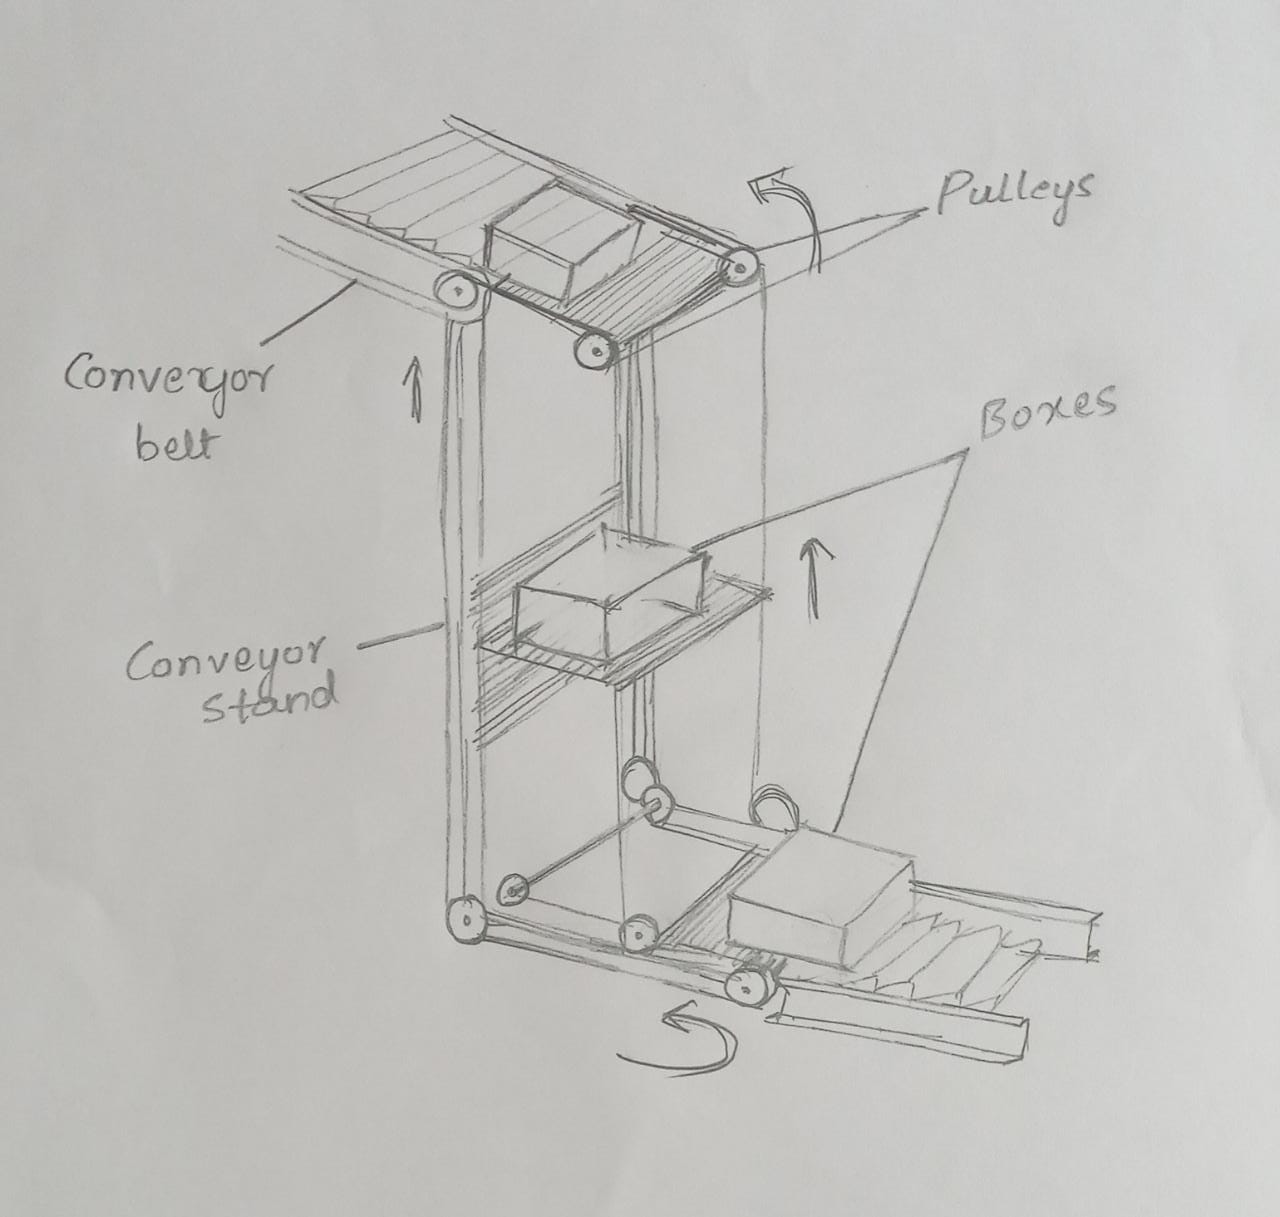 Pulleys
Conveyor
belt
Boxes
Conveyor
stand